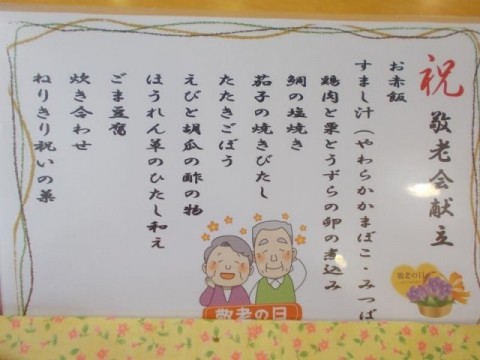 祝 敬老会献立
お赤飯
すまし汁(やわらかかまぼこ・みつば
鶏肉と栗とうずらの卵の煮込み
鯛の塩焼き
茄子の焼きびたし
たたきごぼう
えびと胡瓜の酢の物
ほうれん草のひたし和え
ごま豆腐
炊き合わせ
ねりきり祝いの菓
敬老の日
敬老の日